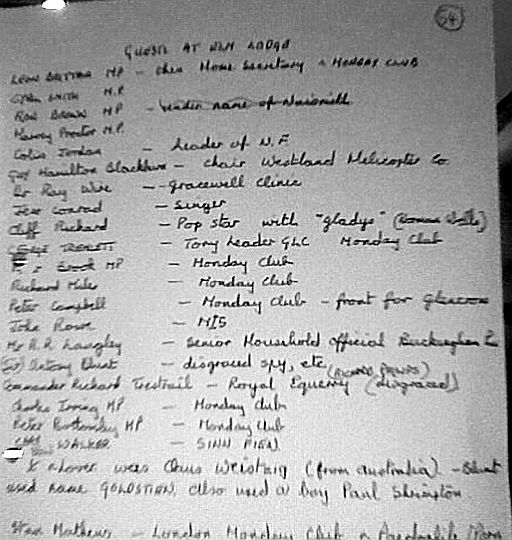 54
GUESTS AT ELM LODGE
LEON BRITTAN MP - then Home Secretary & MONDAY CLUB
CYRIL SMITH M.P.
RON BROWN MP - under name of Naismith
Harvey Proctor M.P.
Colin Jordan - Leader of N.F
Guy Hamilton Blackburn - chair Westland Helicopter Co
Dr Ray Wire -- gracewell clinic
Jess Conrad - Singer
Cliff Richard - Pop star with "gladys"
- Tory Leader GLC Monday Club
Brook MP - Monday Club
Richard Miles - Monday Club
Peter Campbell - Monday Club - front for
John Rowe - MI5
Mr R. R. Langley - Senior Household official Buckingham
(Sir) Antony Blunt - disgraced spy, etc
Commander Richard Trestrail - Royal Equerry (disgraced)
Charles Irving MP - Monday Club
Peter Bottomley MP - Monday Club
WALKER - SINN FIEN
lover was Chris Weisting (from australia) - Blunt
used name GOLDSTIEN, also used a boy Paul Shrimpton
Stan Mathews - London Monday Club